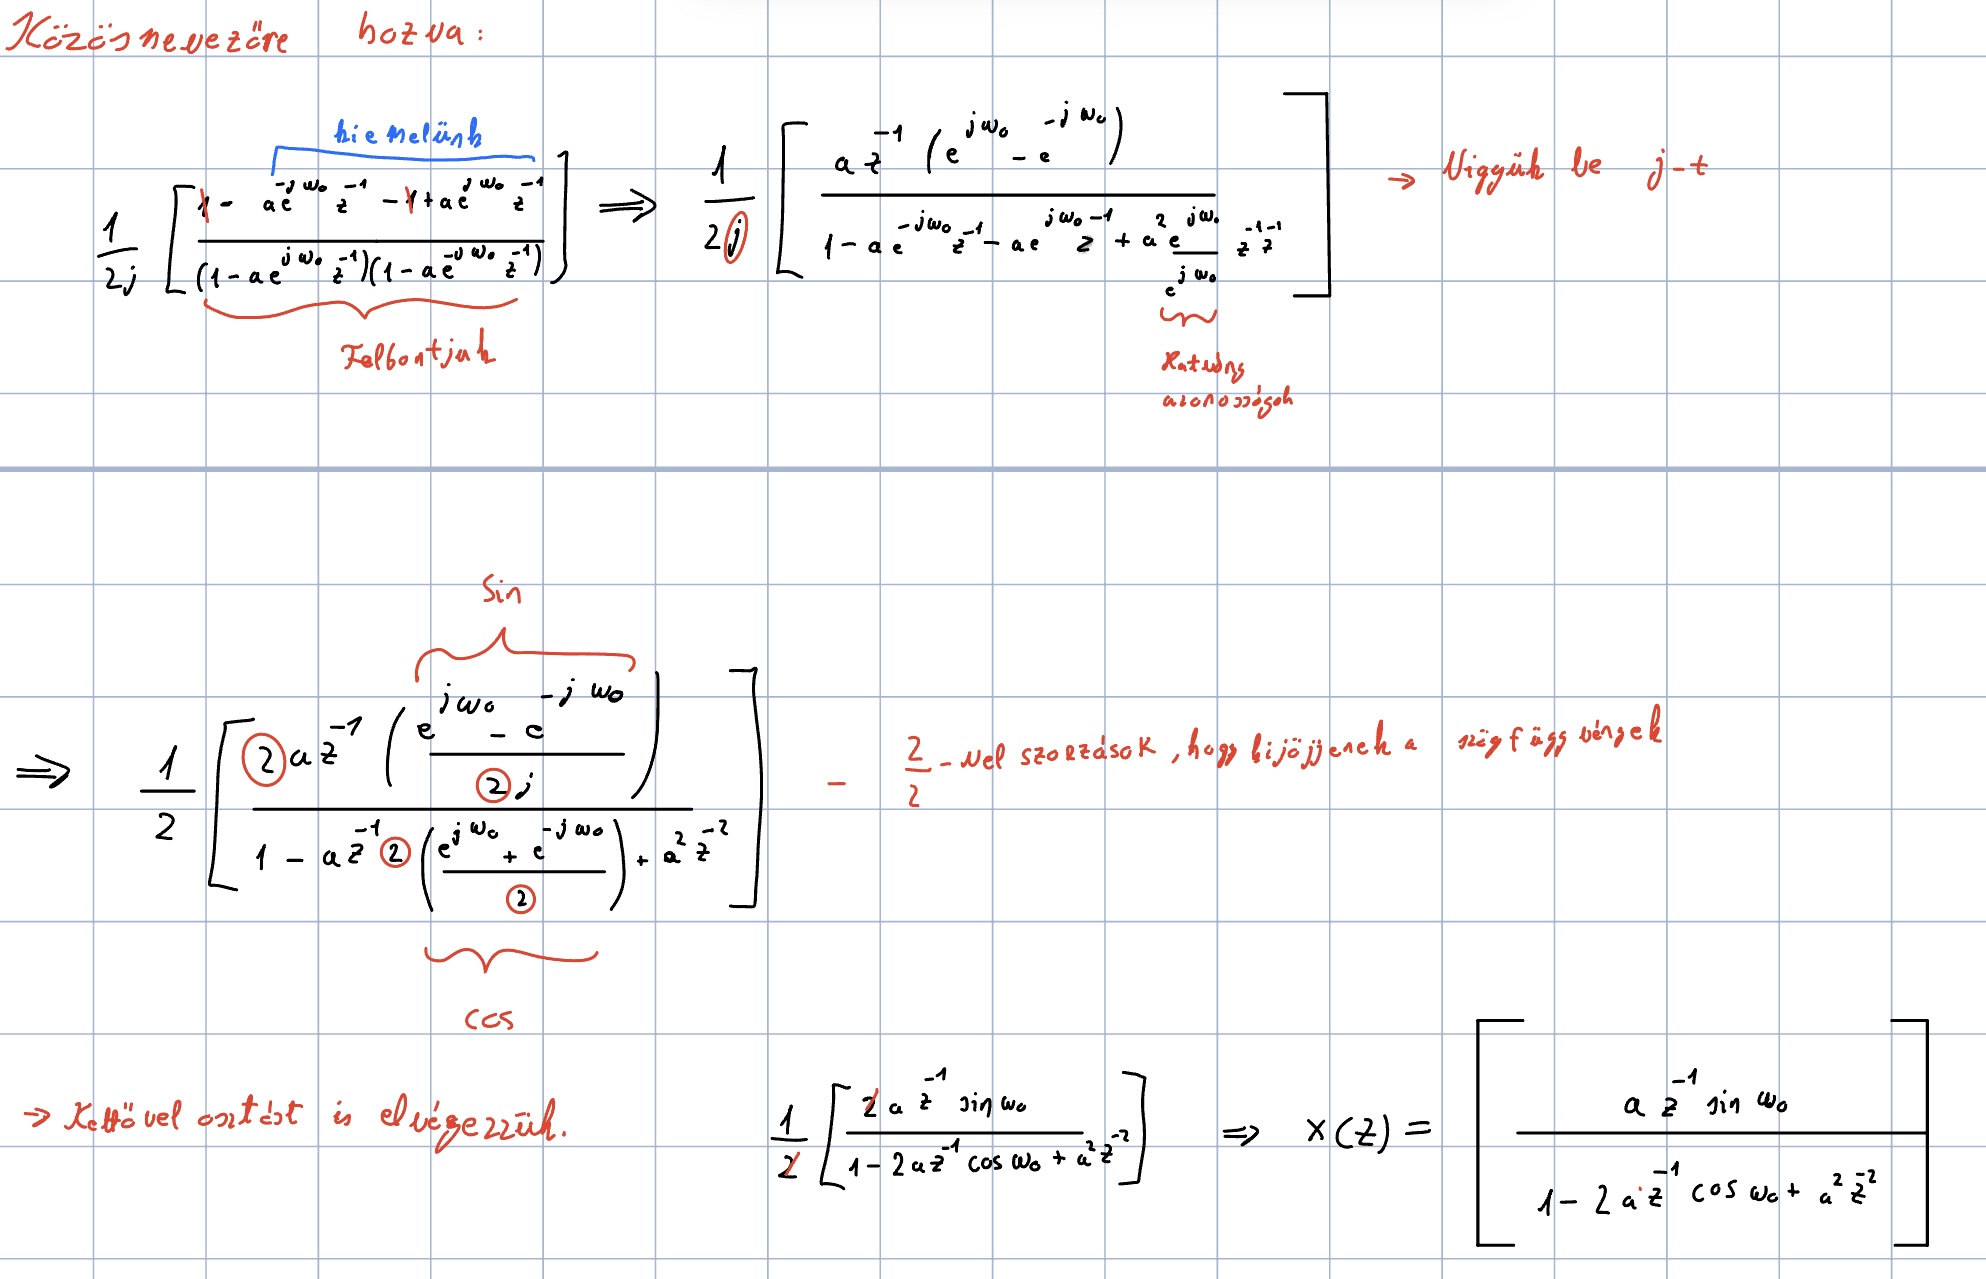 Közös nevezőre hozva:
kiemelünk
1/2j [ (1 - ae^{-jω₀} z^{-1} - 1 + ae^{jω₀} z^{-1}) / ((1 - ae^{jω₀} z^{-1})(1 - ae^{-jω₀} z^{-1})) ] ⇒ 1/2j [ (a z^{-1} (e^{jω₀} - e^{-jω₀})) / (1 - ae^{-jω₀} z^{-1} - ae^{jω₀} z^{-1} + a² e^{jω₀}/e^{jω₀} z^{-1} z^{-1}) ] → Vigyük be j-t
Felbontjuk
Hatvány
azonosságok
Sin
⇒ 1/2 [ (2 a z^{-1} ((e^{jω₀} - e^{-jω₀}) / 2j)) / (1 - a z^{-1} 2 ((e^{jω₀} + e^{-jω₀}) / 2) + a² z^{-2}) ] - 2/2 -vel szorzások, hogy kijöjjenek a szögfüggvények
cos
→ Kettővel osztást is elvégezzük. 1/2 [ (2 a z^{-1} sin ω₀) / (1 - 2 a z^{-1} cos ω₀ + a² z^{-2}) ] ⇒ X(Z) = [ (a z^{-1} sin ω₀) / (1 - 2 a z^{-1} cos ω₀ + a² z^{-2}) ]